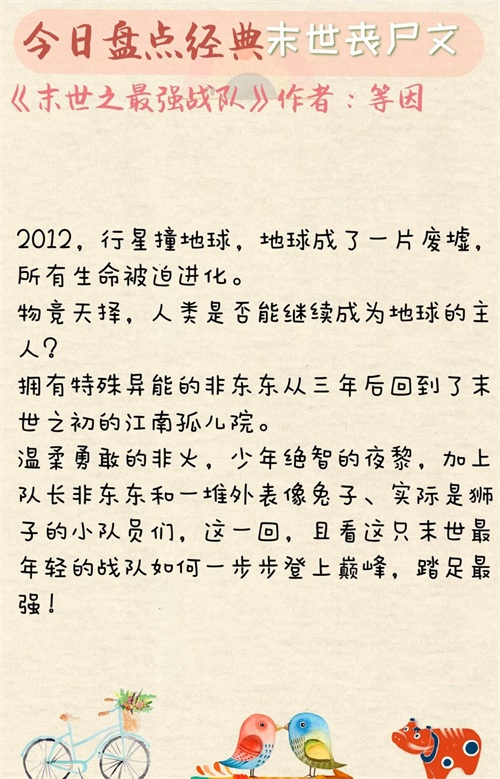 今日盘点经典末世丧尸文
《末世之最强战队》作者：等因
2012，行星撞地球，地球成了一片废墟，
所有生命被迫进化。
物竞天择，人类是否能继续成为地球的主
人？
拥有特殊异能的非东东从三年后回到了末
世之初的江南孤儿院。
温柔勇敢的非火，少年绝智的夜黎，加上
队长非东东和一堆外表像兔子、实际是狮
子的小队员们，这一回，且看这只末世最
年轻的战队如何一步步登上巅峰，踏足最
强！